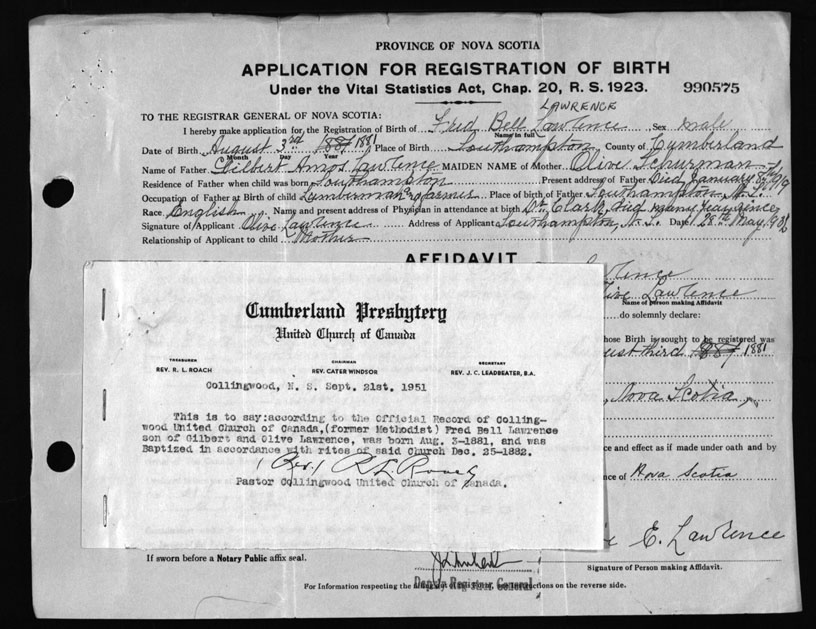 PROVINCE OF NOVA SCOTIA
APPLICATION FOR REGISTRATION OF BIRTH
Under the Vital Statistics Act, Chap. 20, R. S. 1923. 990575
LAWRENCE
TO THE REGISTRAR GENERAL OF NOVA SCOTIA:
I hereby make application for the Registration of Birth of Fred Bell Lawrence Sex male
Name in full
Date of Birth August 3rd 1881 Place of Birth Southampton County of Cumberland
Month Day Year
Name of Father Gilbert Amos Lawrence MAIDEN NAME of Mother Olive Schurman
Residence of Father when child was born Southampton Present address of Father Died January 8th 1919
Occupation of Father at Birth of child Lumberman & farmer Place of birth of Father Southampton, N.S.
Race English Name and present address of Physician in attendance at birth Dr. Clark, died many years since
Signature of Applicant Olive Lawrence Address of Applicant Southampton, N.S. Date 28th May,
Relationship of Applicant to child Mother
AFFIDAVIT
Lawrence
Olive Lawrence
Name of person making Affidavit
do solemnly declare:
hose Birth is sought to be registered was
August third 1881
Nova Scotia
ce and effect as if made under oath and by
nce of Nova Scotia
E. Lawrence
Signature of Person making Affidavit.
Cumberland Presbytery
United Church of Canada
TREASURER CHAIRMAN SECRETARY
REV. R. L. ROACH REV. CATER WINDSOR REV. J. C. LEADBEATER, B.A.
Collingwood, N. S. Sept. 21st. 1951
This is to say:according to the Official Record of Colling-
wood United Church of Canada,(former Methodist) Fred Bell Lawrence
son of Gilbert and Olive Lawrence, was born Aug. 3-1881, and was
Baptized in accordance with rites of said Church Dec. 25-1882.
(Rev.) R L Roach
Pastor Collingwood United Church of Canada.
If sworn before a Notary Public affix seal.
Deputy Registrar General
For Information respecting the ctions on the reverse side.